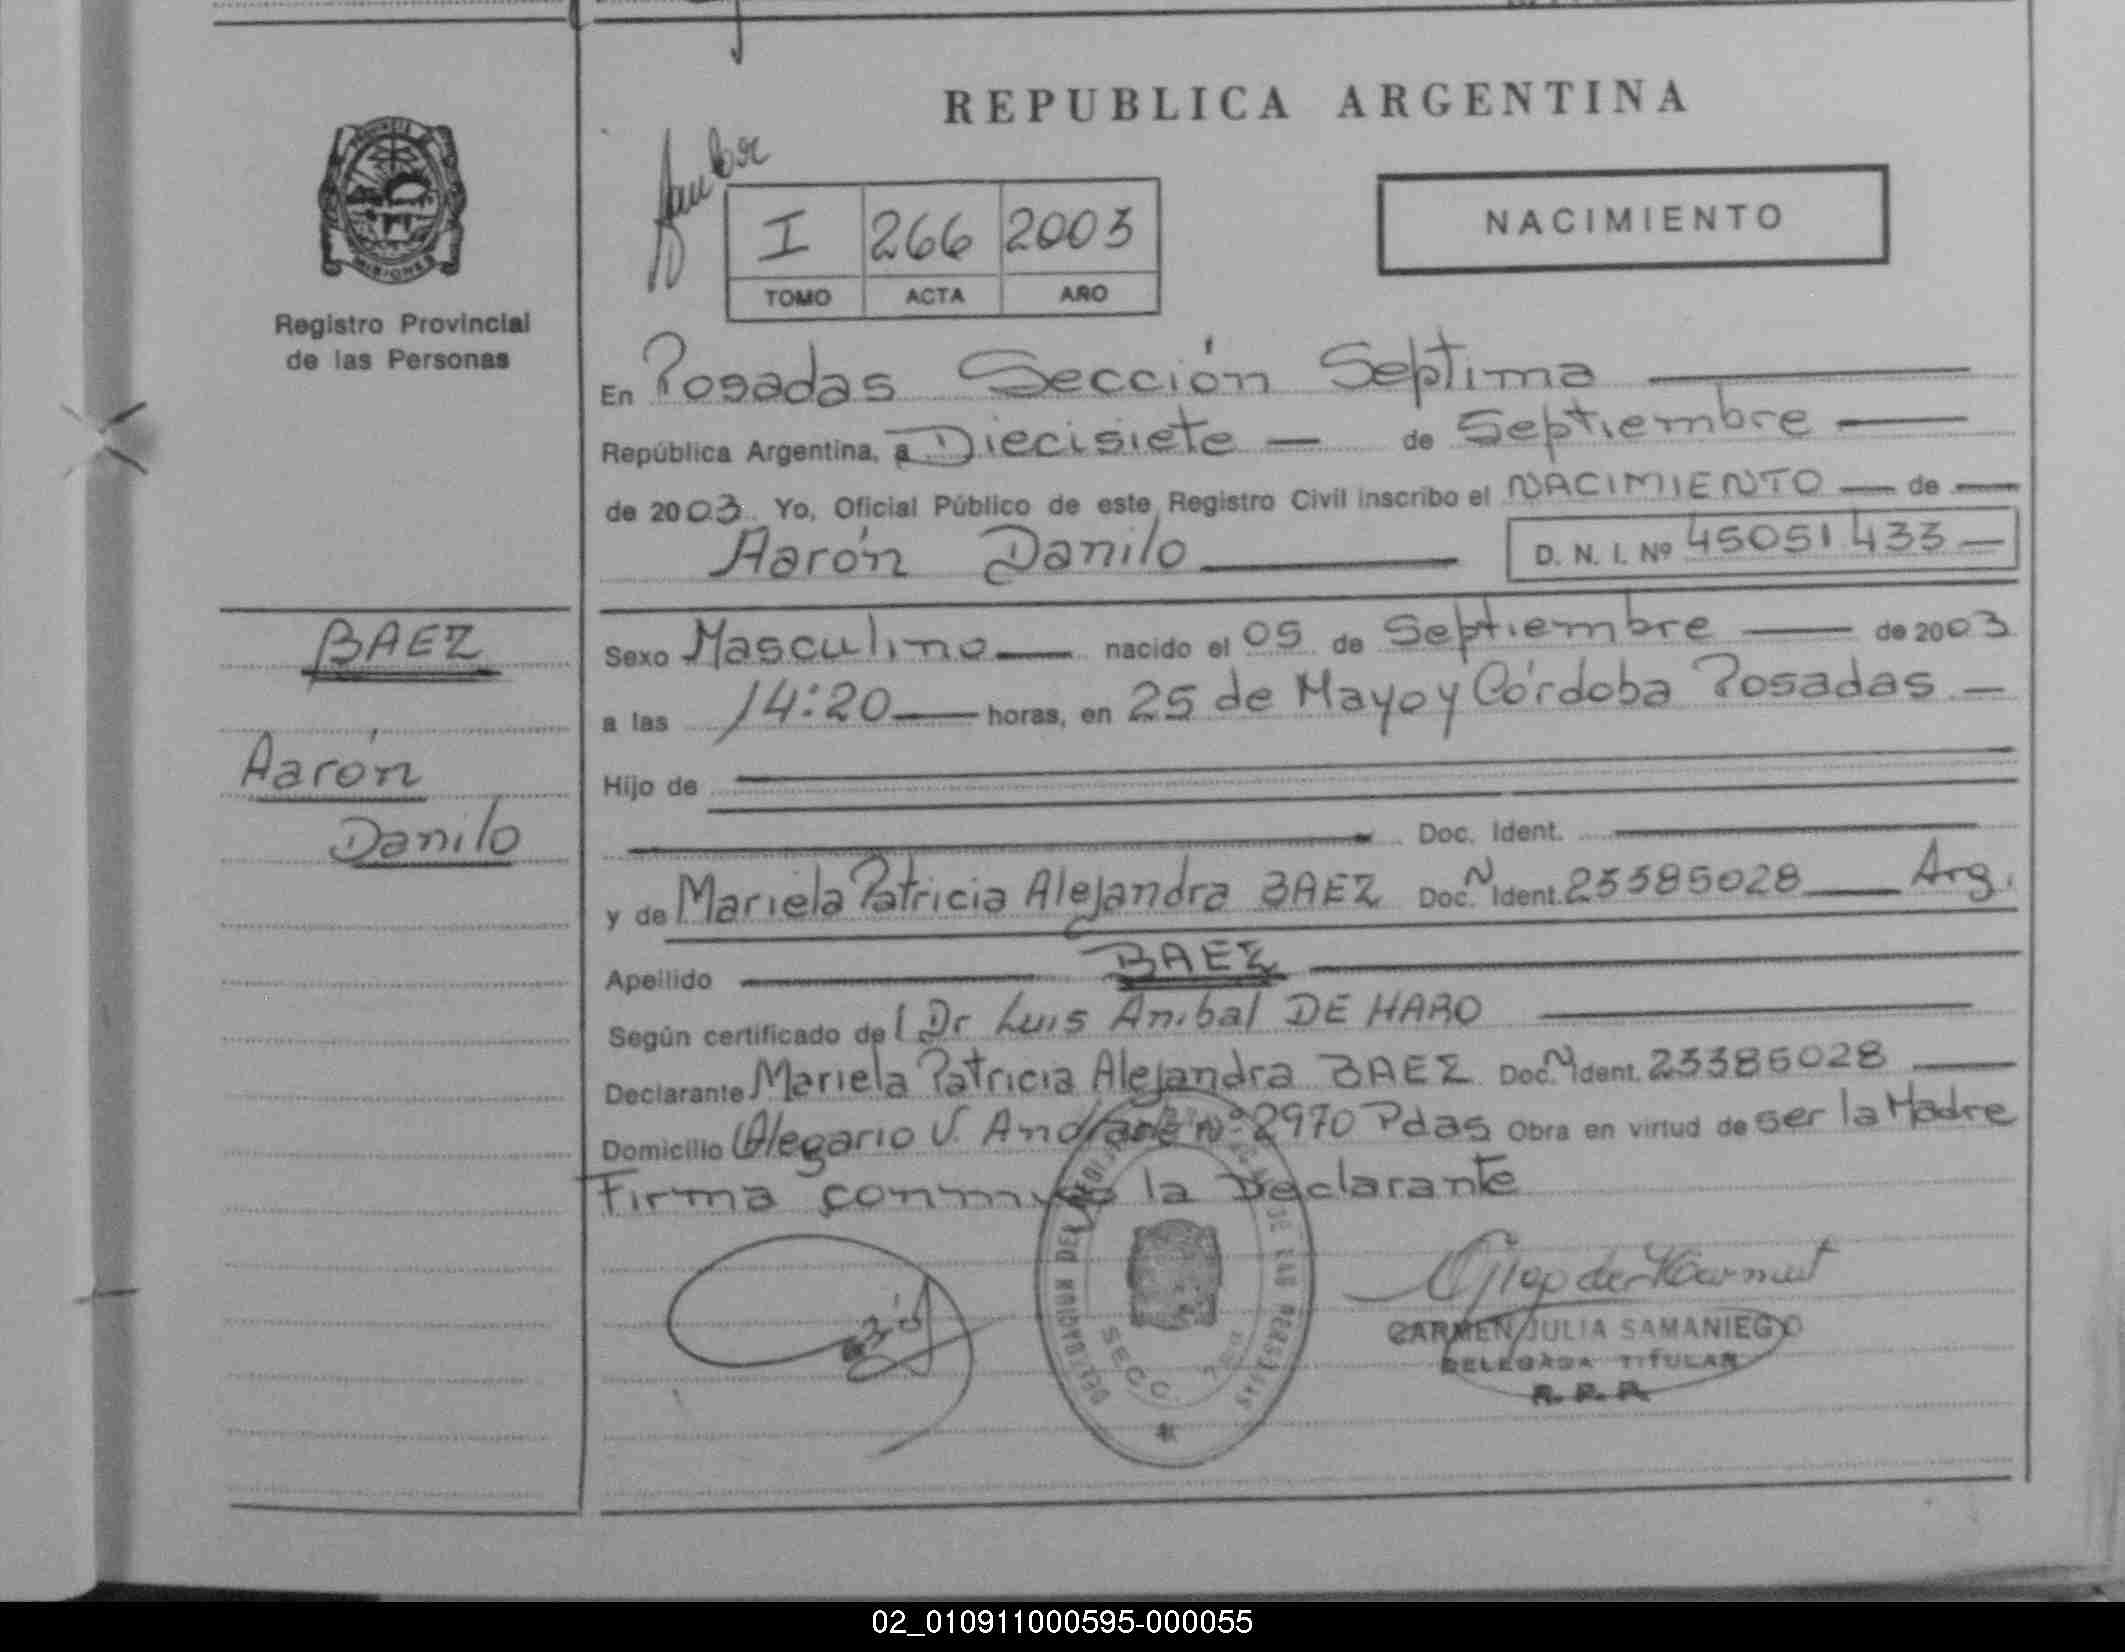 REPUBLICA ARGENTINA
NACIMIENTO
I 266 2003
TOMO ACTA AÑO
MISIONES
Registro Provincial
de las Personas
En Posadas Sección Septima
República Argentina, a Diecisiete de Septiembre
de 2003. Yo, Oficial Público de este Registro Civil inscribo el NACIMIENTO de
Aarón Danilo D. N. I. Nº 45051433
BAEZ
Aarón
Danilo
Sexo Masculino nacido el 05 de Septiembre de 2003
a las 14:20 horas, en 25 de Mayo y Córdoba Posadas
Hijo de
Doc. Ident.
y de Mariela Patricia Alejandra BAEZ Doc. N Ident. 23385028 Arg.
Apellido BAEZ
Según certificado del Dr Luis Anibal DE HARO
Declarante Mariela Patricia Alejandra BAEZ Doc. N Ident. 23385028
Domicilio Olegario V. Andrade Nº 2970 Pdas Obra en virtud de ser la Madre
Firma conmigo la Declarante
SECC.
CARMEN JULIA SAMANIEGO
DELEGADA TITULAR
R. P. P.
02_010911000595-000055